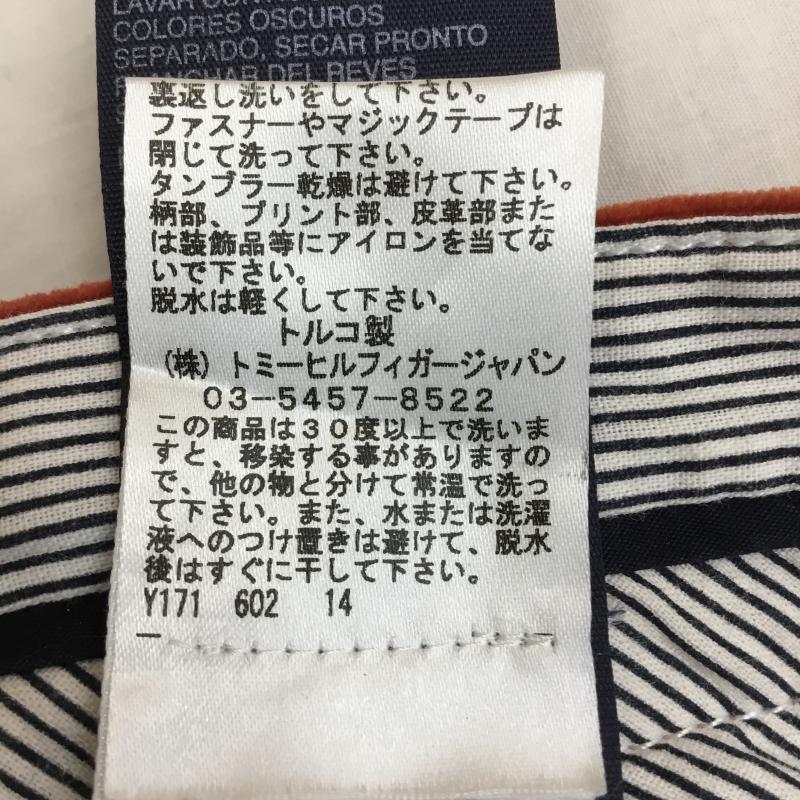 LAVAR CON
COLORES OSCUROS
SEPARADO, SECAR PRONTO
DEL REVES
裏返し洗いをして下さい。
ファスナーやマジックテープは
閉じて洗って下さい。
タンブラー乾燥は避けて下さい。
柄部、プリント部、皮革部また
は装飾品等にアイロンを当てな
いで下さい。
脱水は軽くして下さい。
トルコ製
(株)トミーヒルフィガージャパン
03-5457-8522
この商品は30度以上で洗いま
すと、移染する事がありますの
で、他の物と分けて常温で洗っ
て下さい。また、水または洗濯
液へのつけ置きは避けて、脱水
後はすぐに干して下さい。
Y171 602 14